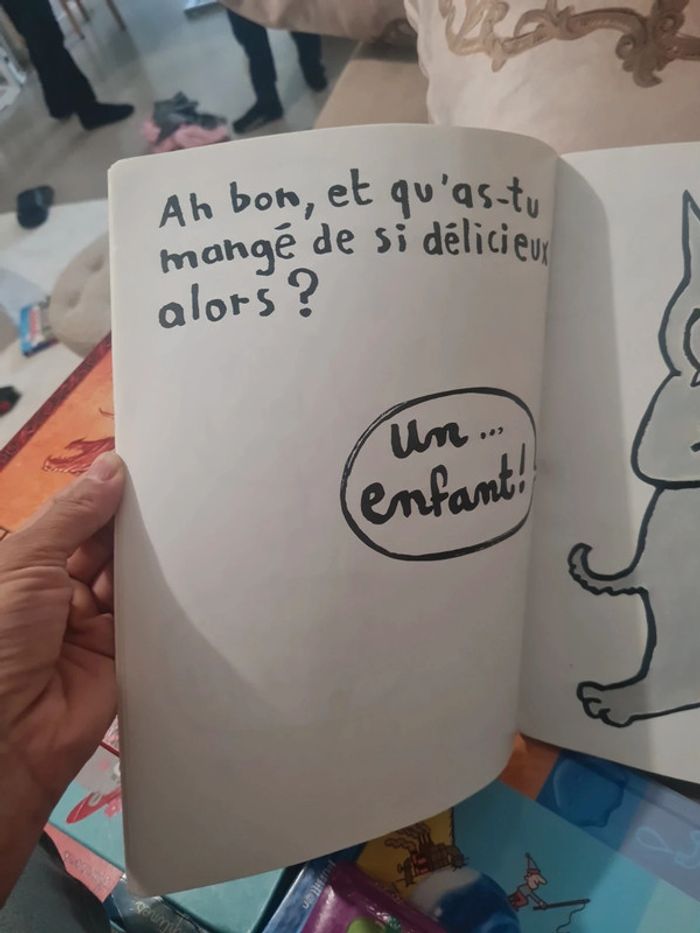 Ah bon, et qu'as-tu
mangé de si délicieux
alors ?
un...
enfant!